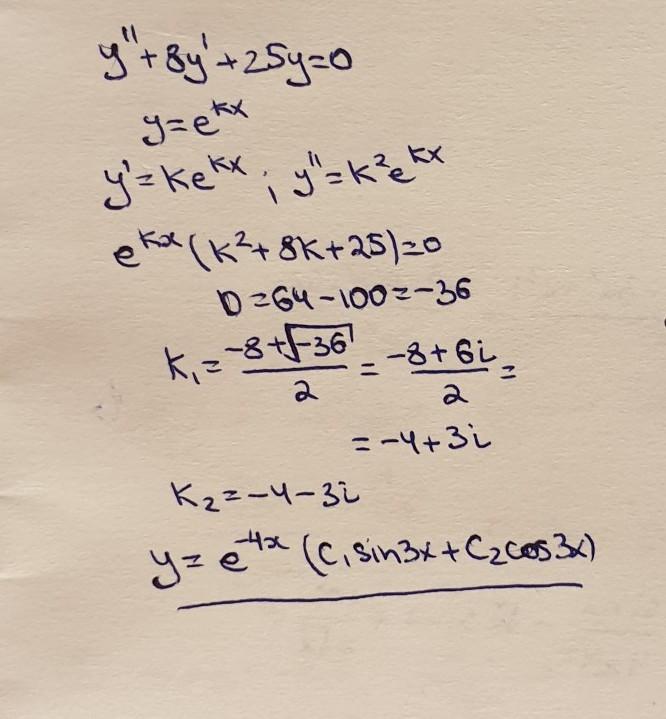 y''+8y'+25y=0
y=e^{kx}
y'=ke^{kx}; y''=k²e^{kx}
e^{kx}(k²+8k+25)=0
D=64-100=-36
k₁=\frac{-8+\sqrt{-36}}{2}=\frac{-8+6i}{2}=
=-4+3i
k₂=-4-3i
y=e^{-4x}(C₁sin3x+C₂cos3x)